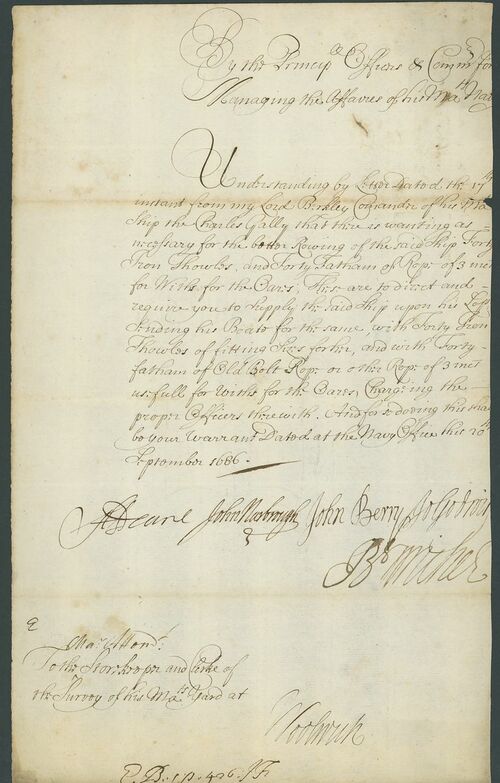 By the Princip^ll Officers & Com^rs for
Managing the Affaires of his Ma^ts Navy
Understanding by Letter Dated the 17^th
instant from my Lord Berkley Comander of his Ma^ts
Ship the Charles Gally that there is wanting as
necessary for the better Rowing of the said Ship Forty
Iron Thowles, and Forty Fatham of Rope of 3 inch
for Withs for the Oares; These are to direct and
require you to supply the said Ship upon his Lops
sending his Boate for the same, with Forty Iron
Thowles of fitting Sizes for her, and with Forty
fatham of Old Bolt Rope or other Rope of 3 inch
usefull for Withs for the Oares, Charging the
proper Officers therewith. And for so doeing this shall
be your Warrant Dated at the Navy Office this 20^th
September 1686.
John Narbrough John Berry
To the Storekeeper and Clerke of
the Survey of his Ma^ts Yard at
Woolwich